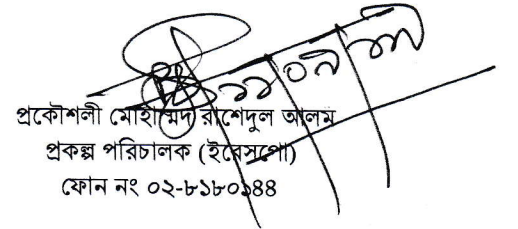 প্রকৌশলী মোহাম্মেদ রাশেদুল আলম
প্রকল্প পরিচালক (ইরেসপো)
ফোন নং ০২-৮১৮০১৪৪